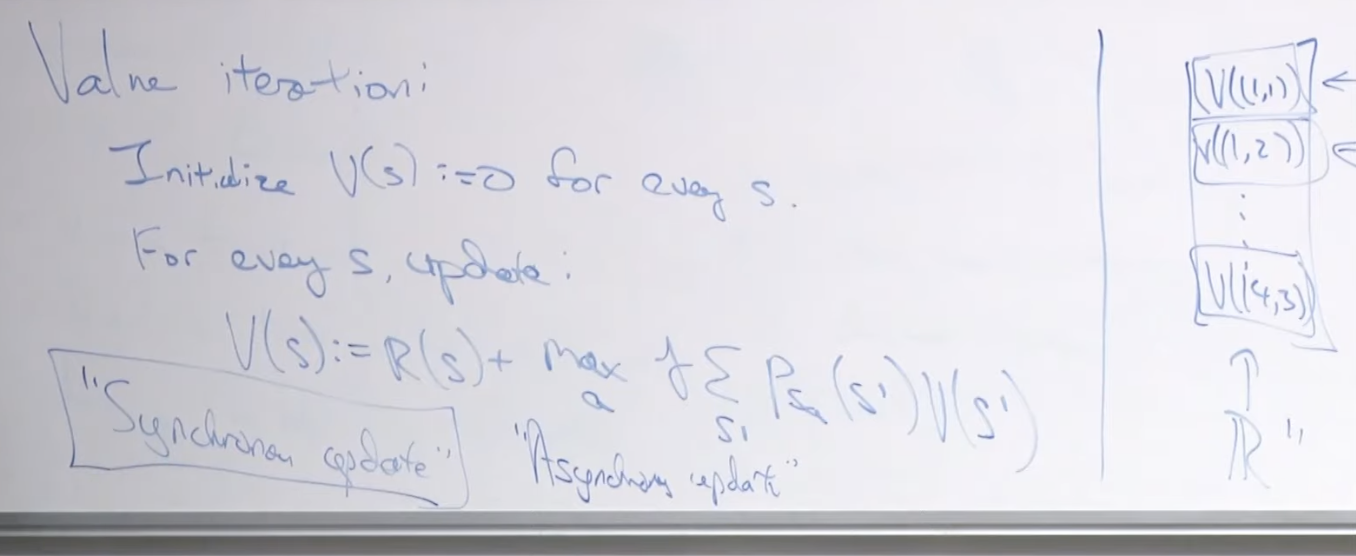 Value iteration:
Initialize V(s) := 0 for every s.
For every s, update:
V(s) := R(s) + max_a γ Σ_{s'} P_{sa}(s') V(s')
"Synchronous update"
"Asynchronous update"
V((1,1)) ←
V((1,2)) ←
⋮
V((4,3))
↑
ℝ^{11}